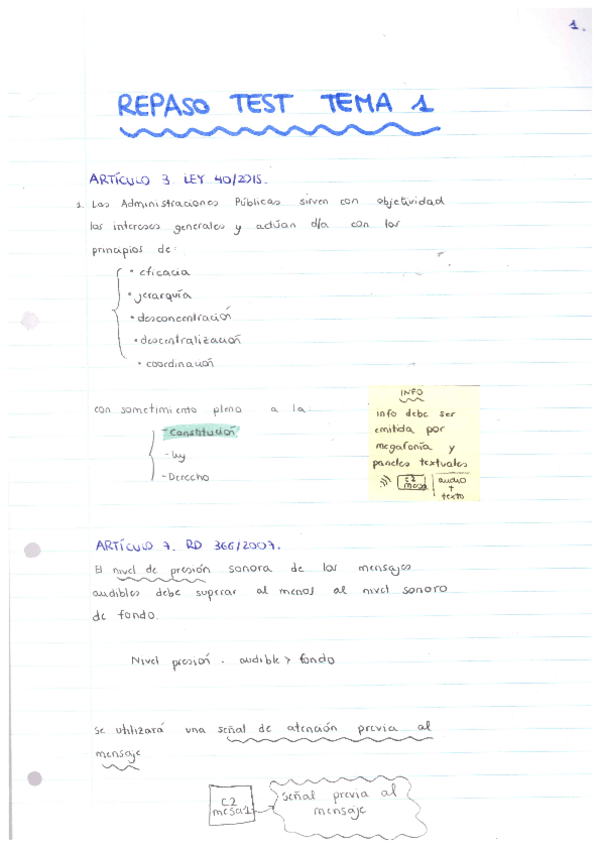 1.
REPASO TEST TEMA 1
ARTÍCULO 3 LEY 40/2015.
1. Las Administraciones Públicas sirven con objetividad
los intereses generales y actúan d/a con los
principios de:
• eficacia
• jerarquía
• desconcentración
• descentralización
• coordinación
con sometimiento pleno a la:
- Constitución
- Ley
- Derecho
INFO
info debe ser
emitida por
megafonía y
paneles textuales
C2
mesa
audio
+
texto
ARTÍCULO 7. RD 366/2007.
El nivel de presión sonora de los mensajes
audibles debe superar al menos al nivel sonoro
de fondo.
Nivel presión. audible > fondo
Se utilizará una señal de atención previa al
mensaje
C2
mesa1
señal previa al
mensaje